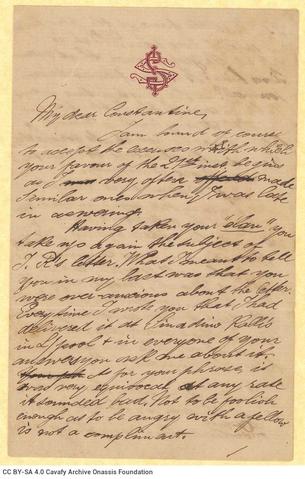 My dear Constantine,
I am bound of course
to accept the excuses with which
your favour of the 27th inst. begins
as I very often make
similar ones when I was late
in answering.
Having taken your "elan" you
take up again the subject of
J. R's letter. What I meant to tell
you in my last was that you
were over-anxious about the letter.
Everytime I wrote you that I had
delivered it at Pinadino Rallis
in L'pool & in everyone of your
answers you ask me about it.
As for your phrase, it
was very equivocal at any rate
it sounded bad. Not to be foolish
enough as to be angry with a fellow
is not a compliment.
CC BY-SA 4.0 Cavafy Archive Onassis Foundation